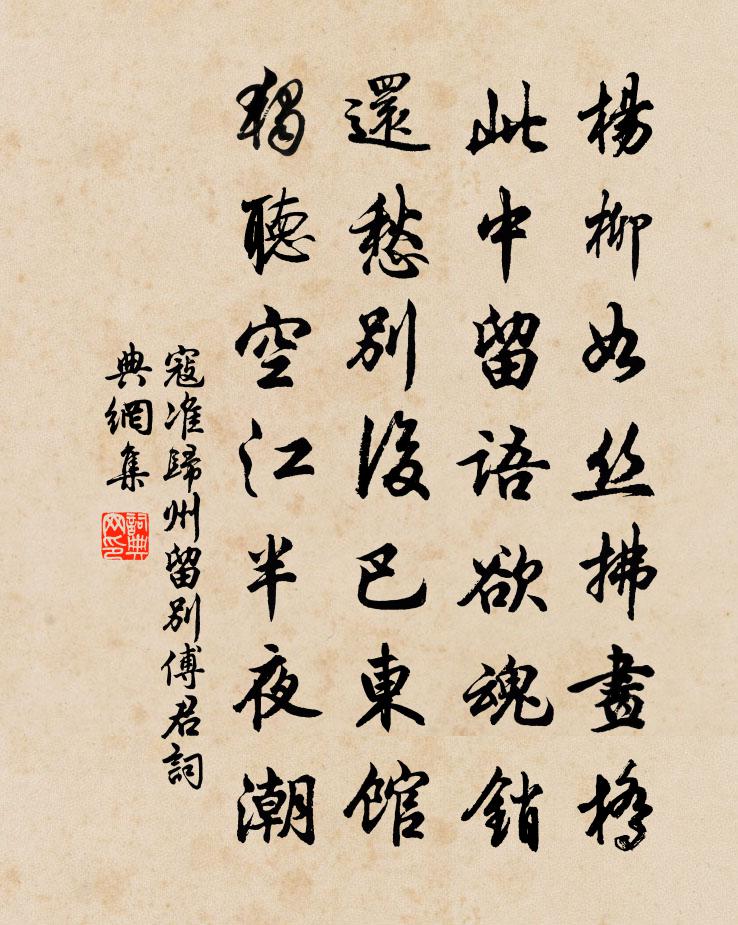 楊柳如絲拂畫橋
此中留語欲魂銷
還愁別後巴東館
獨聽空江半夜潮
寇准歸州留別傅君詞
典網集
詞典
网印